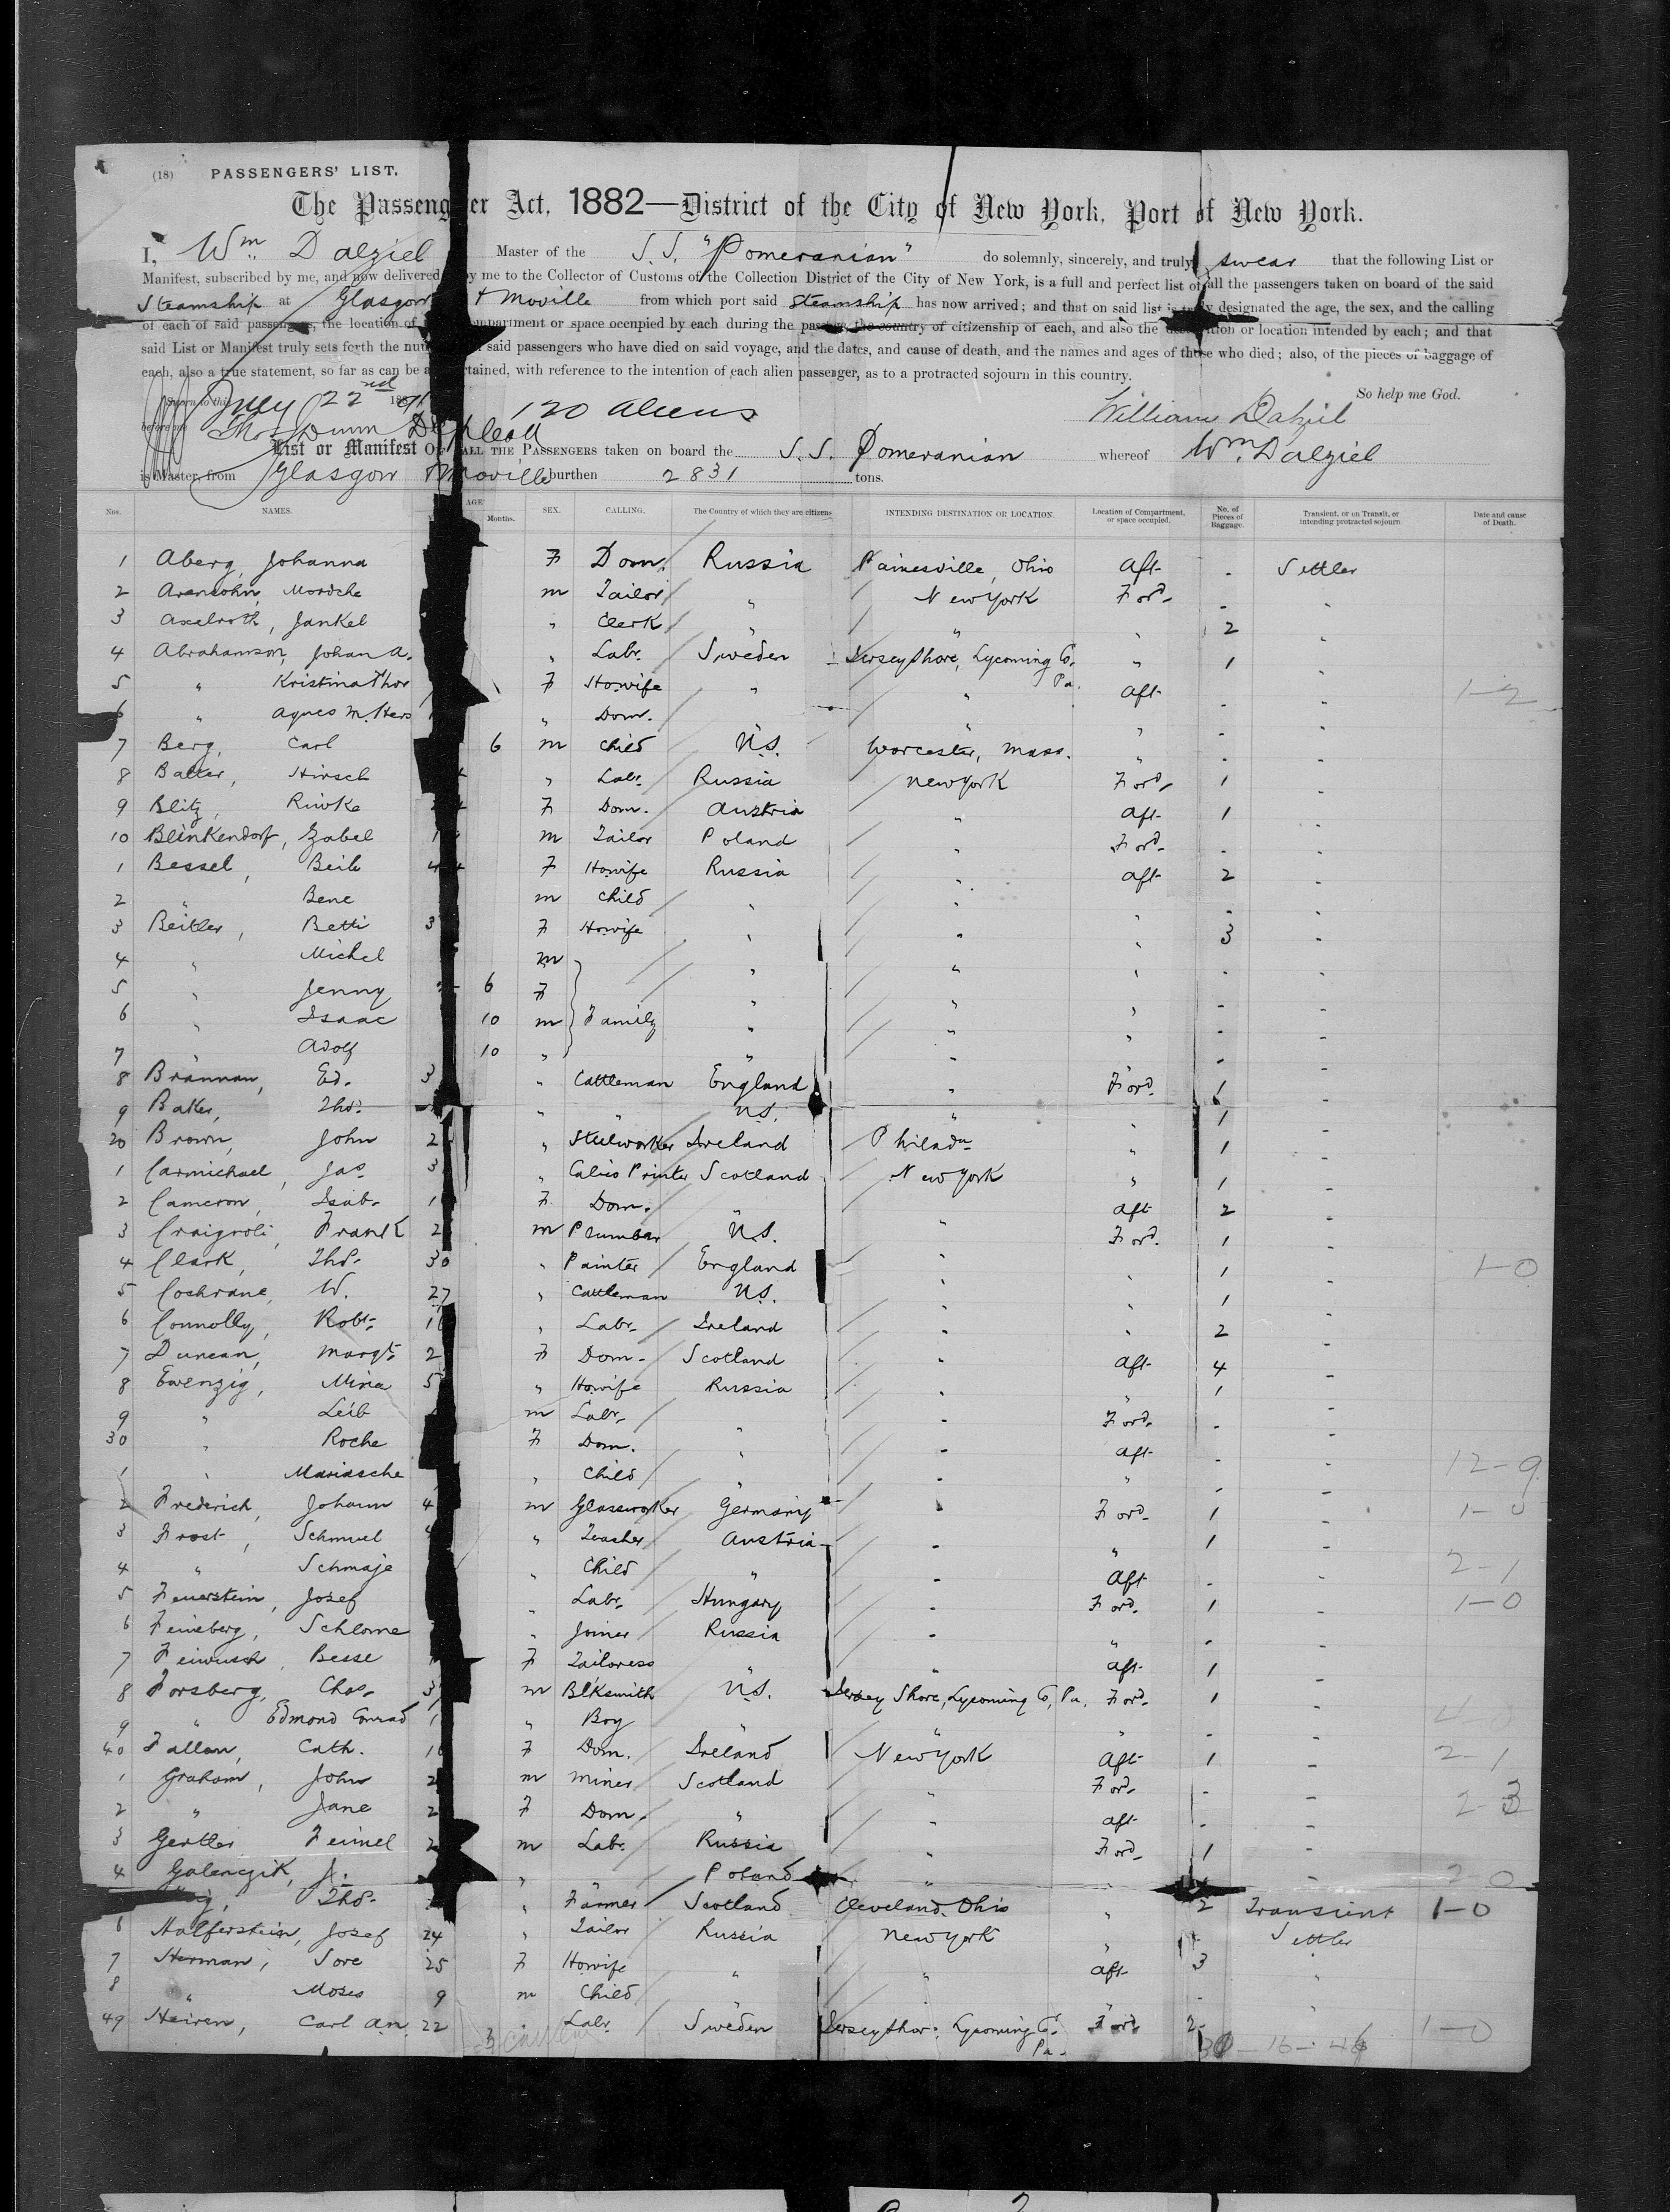 (18) PASSENGERS' LIST.
The Passenger Act, 1882—District of the City of New York, Port of New York.
I, Wm. Dalziel Master of the S.S. "Pomeranian" do solemnly, sincerely, and truly swear that the following List or
Manifest, subscribed by me, and now delivered by me to the Collector of Customs of the Collection District of the City of New York, is a full and perfect list of all the passengers taken on board of the said
Steamship at Glasgow & Moville from which port said Steamship has now arrived; and that on said list is truly designated the age, the sex, and the calling
of each of said passengers, the location of compartment or space occupied by each during the passage, the country of citizenship of each, and also the destination or location intended by each; and that
said List or Manifest truly sets forth the number said passengers who have died on said voyage, and the dates, and cause of death, and the names and ages of those who died; also, of the pieces of baggage of
each, also a true statement, so far as can be ascertained, with reference to the intention of each alien passenger, as to a protracted sojourn in this country.
So help me God.
Sworn to this 22nd 189
before me Thos Dunn
120 Aliens
William Dalziel
List or Manifest OF ALL THE PASSENGERS taken on board the S.S. Pomeranian whereof Wm. Dalziel
is Master, from Glasgow & Moville burthen 2831 tons.
Nos. NAMES. AGE Months. SEX. CALLING. The Country of which they are citizens INTENDING DESTINATION OR LOCATION. Location of Compartment, or space occupied. No. of Pieces of Baggage. Transient, or on Transit, or intending protracted sojourn Date and cause of Death.
1 Aberg, Johanna F Dom. Russia Painesville, Ohio Aft - Settler
2 Arensohn, Mordche m Tailor " New York Ford - "
3 Axelroth, Jankel " Clerk " " " 2 "
4 Abrahamson, Johan A. " Labr. Sweden Jersey Shore, Lycoming Co. Pa. " 1 "
5 " Kristina Thor F Howife " " Aft - " 1-2
6 " Agnes M. Hers " Dom. " " - "
7 Berg, Carl 6 m Child U.S. Worcester, Mass. " - "
8 Balter, Hirsch " Labr. Russia New York Ford 1 "
9 Blitz, Riwke F Dom. Austria " Aft 1 "
10 Blinkendorf, Zabel 1 m Tailor Poland " Ford - "
1 Bessel, Beile 4 F Howife Russia " Aft 2 "
2 " Bene m Child " " " - "
3 Beitler, Betti 3 F Howife " " " 3 "
4 " Michel m " " " - "
5 " Jenny 6 F " " " - "
6 " Isaac 10 m Family " " " - "
7 " Adolf 10 " " " " - "
8 Brannan, Ed. 3 " Cattleman England " Ford 1 "
9 Baker, Thos. " " U.S. " " 1 "
20 Brown, John 2 " Steelworker Ireland Philada " 1 "
1 Carmichael, Jas. 3 " Calico Printer Scotland New York " 1 "
2 Cameron, Isab. 1 F Dom. " " Aft 2 "
3 Craignoli, Frank 2 m Plumber U.S. " Ford 1 "
4 Clark, Thos. 30 " Painter England " " 1 " 1-0
5 Cochrane, W. 27 " Cattleman U.S. " " 1 "
6 Connolly, Robt. 1 " Labr. Ireland " " 2 "
7 Duncan, Margt. 2 F Dom. Scotland " Aft 4 "
8 Ewenzig, Mina 5 " Howife Russia " " 1 "
9 " Leib m Labr. " " Ford - "
30 " Roche F Dom. " " Aft - "
1 " Mariasche " Child " " " - " 12-9
2 Frederich, Johann 4 m Glassworker Germany " Ford 1 " 1-0
3 Frost, Schmuel " Teacher Austria " " 1 "
4 " Schmaje " Child " " Aft - " 2-1
5 Feuerstein, Josef " Labr. Hungary " Ford 1 " 1-0
6 Feineberg, Schlome " Joiner Russia " " - "
7 Feiwusch, Besse F Tailoress " " Aft 1 "
8 Forsberg, Chas. 3 m Blksmith U.S. Jersey Shore, Lycoming Co, Pa. Ford 1 "
9 " Edmond Conrad 1 " Boy " " " - " 4-0
40 Fallon, Cath. 1 F Dom. Ireland New York Aft 1 " 2-1
1 Graham, John 2 m Miner Scotland " Ford - "
2 " Jane 2 F Dom. " " Aft - " 2-3
3 Gertler Feimel 2 m Labr. Russia " Ford 1 "
4 Galenczik, J. " " Poland " " " 2-0
Thos. " Farmer Scotland Cleveland, Ohio " 2 Transient 1-0
6 Halferstein, Josef 24 " Tailor Russia New York " - Settler
7 Herman, Sore 25 F Howife " " Aft 3 "
8 " Moses 9 m Child " " " - "
49 Heiren, Carl An. 22 " Labr. Sweden Jersey Shore, Lycoming Co. Pa. Ford 2 1-0